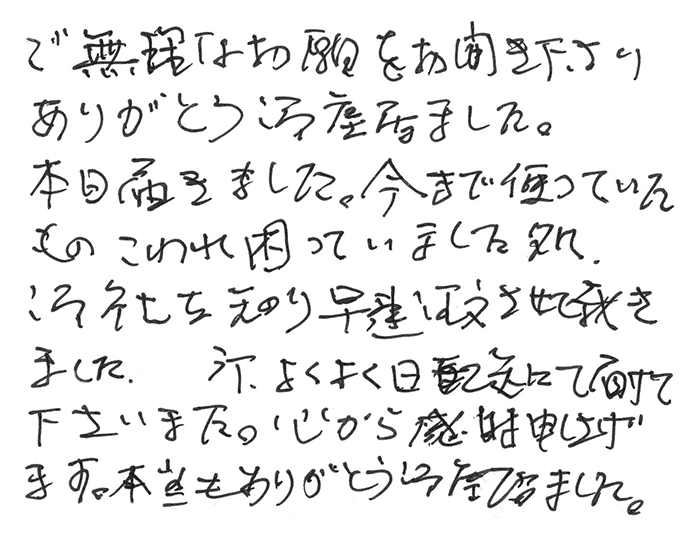 ご無理なお願をお聞き下さり
ありがとう御座居ました。
本日届きました。今まで使っていた
ものこわれ困っていました処、
御社を知り早速注文させて戴き
ました。 よくよく日配にて届けて
下さいました。心から感謝申し上げ
ます。本当もありがとう御座居ました。